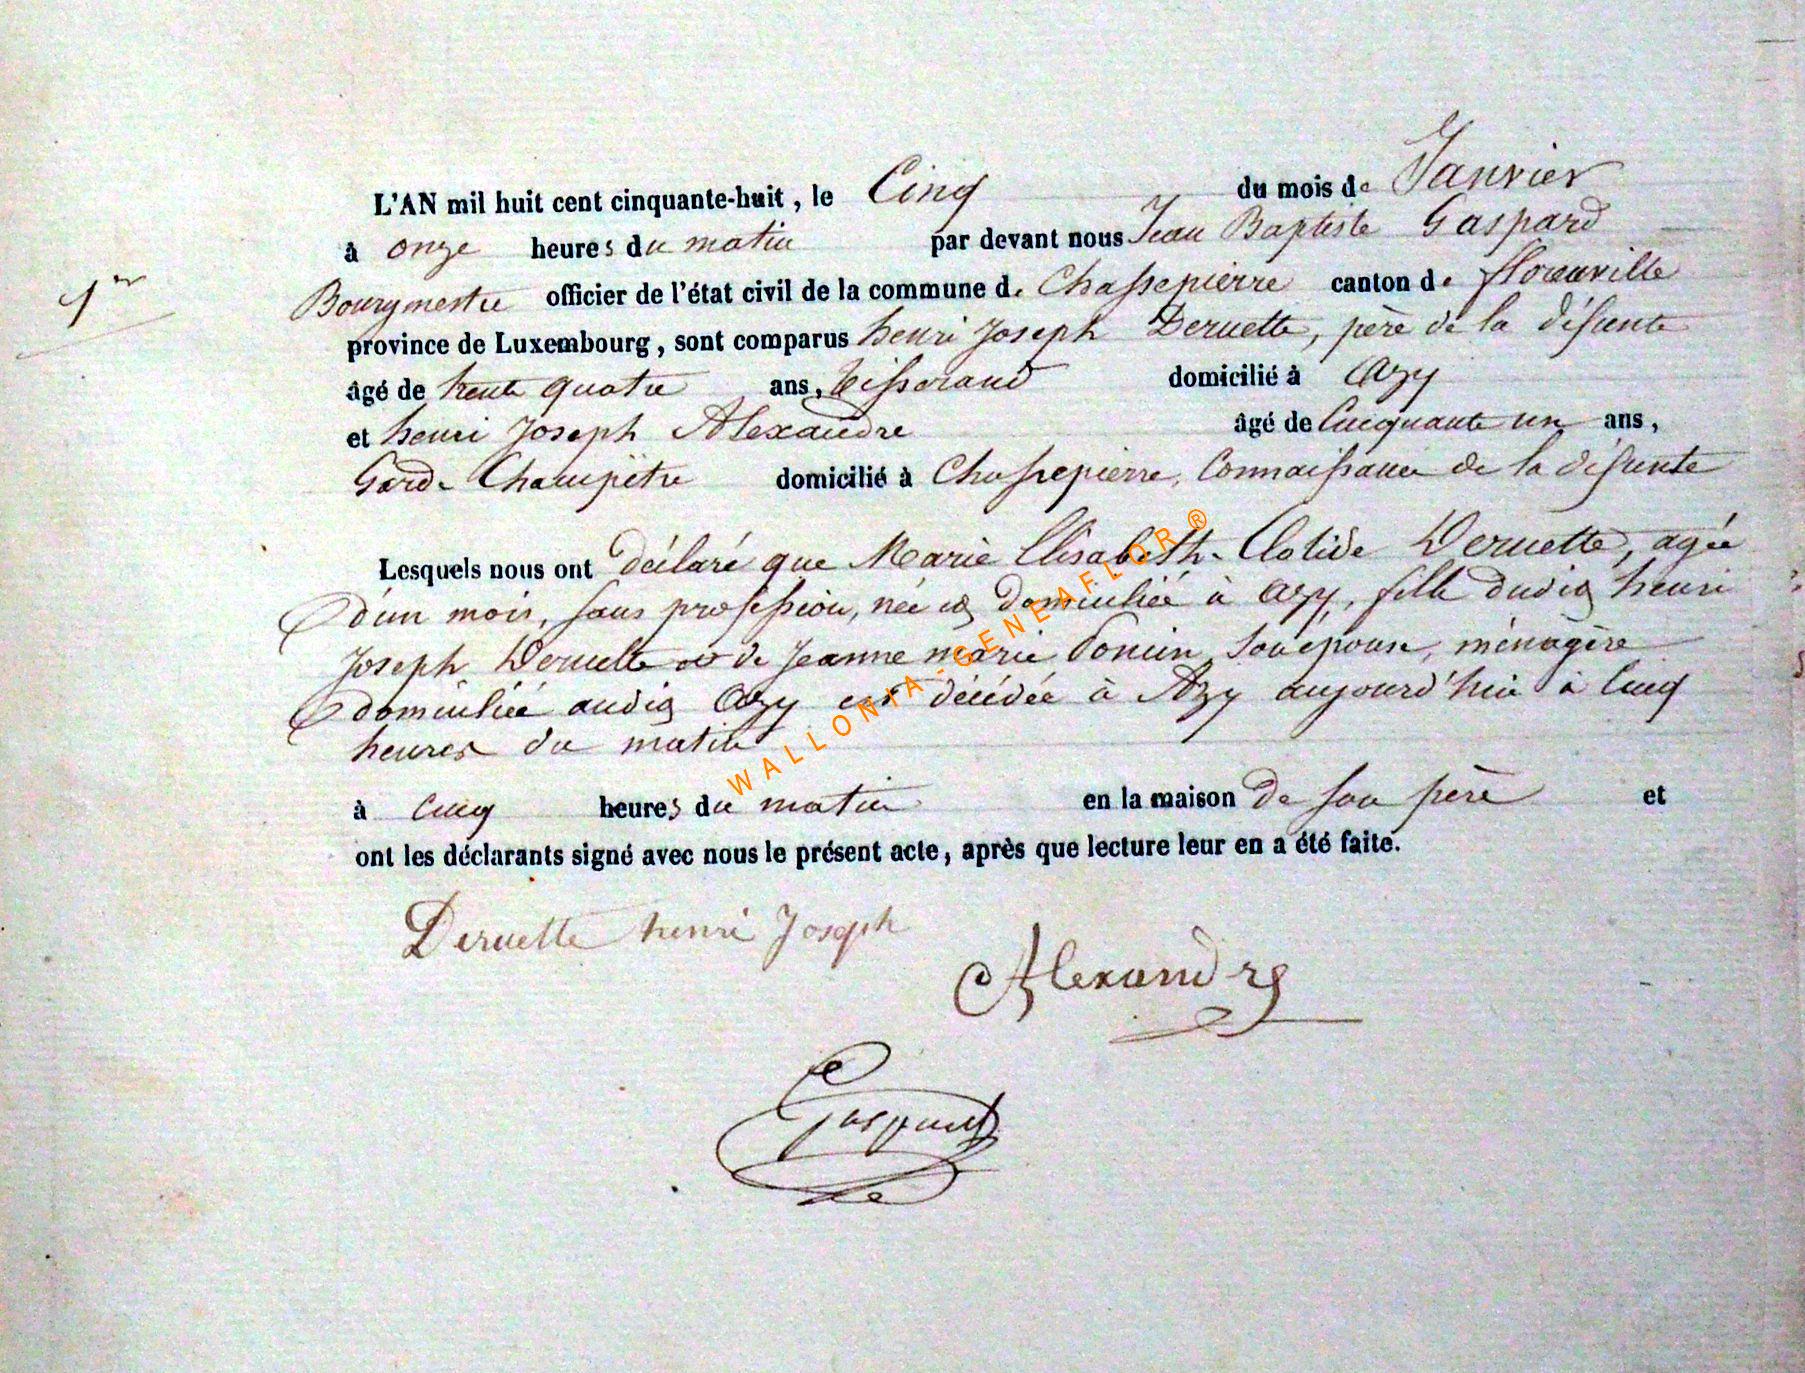 L'AN mil huit cent cinquante-huit, le Cinq du mois de Janvier
à onze heures du matin par devant nous Jean Baptiste Gaspard
1er
Bourgmestre officier de l'état civil de la commune de Chassepierre canton de florenville
province de Luxembourg, sont comparus henri Joseph Deruette, père de la défunte
âgé de trente quatre ans, tisserand domicilié à Azy
et henri Joseph Alexandre âgé de Cinquante un ans,
Garde Champêtre domicilié à Chassepierre, Connaissance de la défunte
Lesquels nous ont déclaré que Marie Elisabeth Clotide Deruette, agée
d'un mois, sans profession, née et domiciliée à Azy, fille dudit henri
Joseph Deruette et de Jeanne marie son épouse, ménagère
domiciliée audit Azy est décédée à Azy aujourd'hui à Cinq
heures du matin
WALLONIA-GENEAFLOR ®
à Cinq heures du matin en la maison de son père et
ont les déclarants signé avec nous le présent acte, après que lecture leur en a été faite.
Deruette henri Joseph
Alexandre
Gaspard